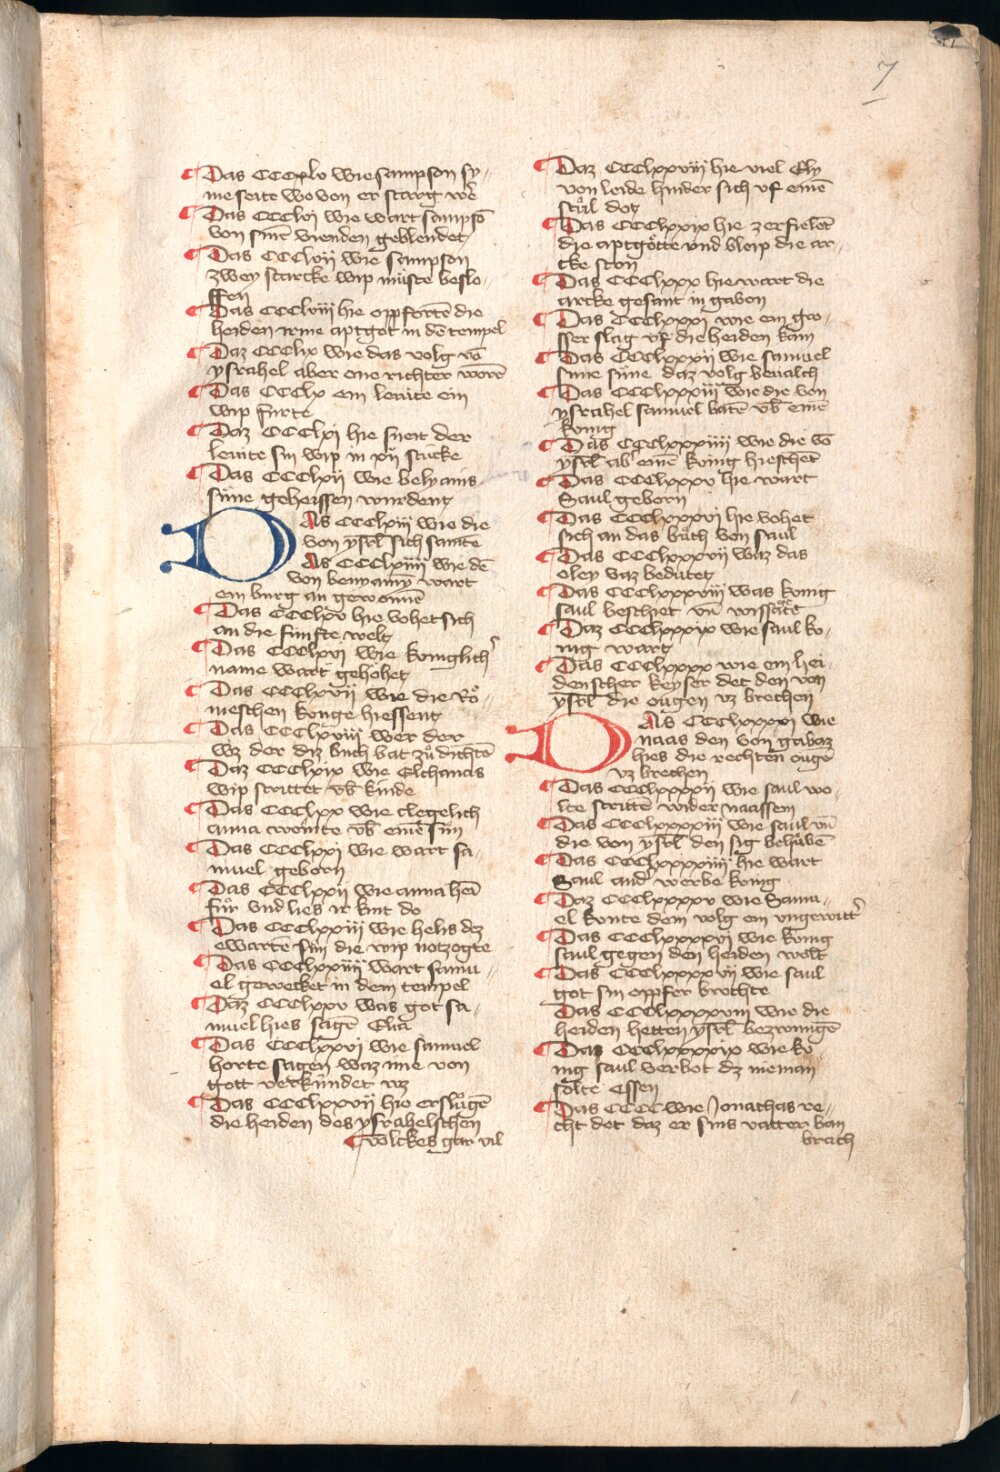 7
Das CCCxlv wie sampson sy-
me seite wo von er starg wē
Das CCClvi wie wart sampsō
von sinē vienden geblendet
Das CCClvij wie sampson
zwey starcke wip müste beslo-
ffen
Das CCClviij hie oppfortē die
heiden irme aptgot in dē tempel
Daz CCClix wie das volg vō
ysrahel aber one richter worē
Das CCClx ein leuite ein
wip furte
Daz CCClxi hie sneit der
leuite sin wip in xij stücke
Das CCClxij wie belyamis
süne geheissen wurdent
DAs CCClxiij wie die
von ysrl̄ sich samtē
As CCClxiiij wie dē
von benyamȳ wart
ein burg an gewonnē
Das CCClxv hie vohet sich
an die funfte welt
Das CCClxvi wie koniglich'
name wart gehöhet
Das CCClxvij wie die Rö-
meschen konge hiessent
Das CCClxviij wer der
wz der diz buch bat zů dichtē
Daz CCClxix wie Elchanas
wip strittet vb̄ kinde
Das CCClxx wie clegelich
anna weinte vb̄ einē sun
Das CCClxxi wie wart sa-
muel geborn
Das CCClxxij wie anna hei
fůr vnd lies ir kint do
Das CCClxxiij wie helis dez
ewarte sün die wip notzogte
Das CCClxxiiij wart samu-
el gewecket in dem tempel
Daz CCClxxv was got sa-
muel hies sagē Elia
Das CCClxxvi wie samuel
horte sagen waz ime von
gott verkündet wz
Das CCClxxvij hie erslůgē
die heiden des ysrahelschen
volckes gar vil
Daz CCClxxviij hie viel Ely
von leide hinder sich vf einē
stůl dot
Das CCClxxix hie zerfielēt
die aptgötte vnd bleip die ar-
cke ston
Das CCClxxx hie wart die
arcke gesant in gabon
Das CCClxxxi wie ein gro-
sser slag vf die heiden kam
Das CCClxxxij wie samuel
sime süne daz volg beualch
Das CCClxxxiij wie die von
ysrahel samuel batē vb̄ einē
konig
Das CCClxxxiiij wie die vō
ysrl̄ ab einē konig hieschēt
Das CCClxxxv hie wart
Saul geborn
Das CCClxxxvi hie vohet
sich an das bůch von saul
Das CCClxxxvij waz das
oley vaz bedütet
Das CCClxxxviij was konig
saul beschet vn̄ wissatē
Daz CCClxxxix wie saul ko-
nig wart
Das CCClxxxx wie ein hei-
denscher keyser det den von
ysrl̄ die ougen vz brechen
DAs CCClxxxxi wie
naas den von gabaz
hies die rechten ougē
vz brechen
Das CCClxxxxij wie saul wo-
lte strittē wider naassen
Das CCClxxxxiij wie saul vn̄
die von ysrl̄ den sig behůbē
Das CCClxxxxiiij hie wart
Saul and' werbe konig
Daz CCClxxxxv wie Samu-
el konte dem volg ein vngewitt'
Das CCClxxxxvi wie konig
saul gegen den heiden wolt
Das CCClxxxxvij wie saul
got sin oppfer brohte
Das CCClxxxxviij wie die
heiden hetten ysrl̄ bezwungē
Das CCClxxxxix wie ko-
nig saul verbot dz nieman
solte essen
Das CCCC wie Jonathas re-
cht det daz er sins vatter ban
brach